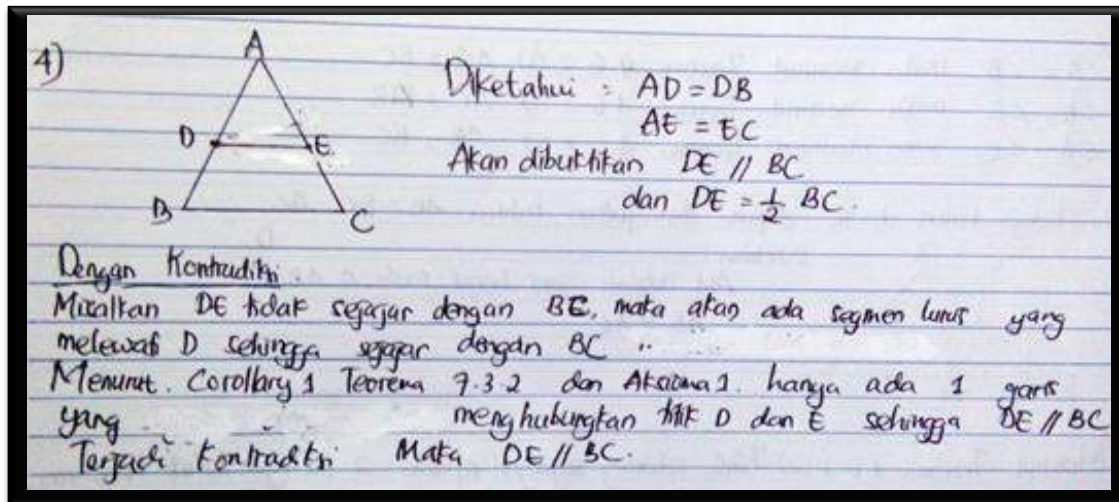 4)
A
D E
B C
Diketahui : AD = DB
AE = EC
Akan dibuktikan DE // BC
dan DE = 1/2 BC.
Dengan Kontradiksi.
Misalkan DE tidak sejajar dengan BC, maka akan ada segmen lurus yang
melewati D sehingga sejajar dengan BC ..
Menurut. Corollary 1 Teorema 7.3.2 dan Aksioma 1. hanya ada 1 garis
yang menghubungkan titik D dan E sehingga DE // BC
Terjadi Kontradiksi Maka DE // BC.